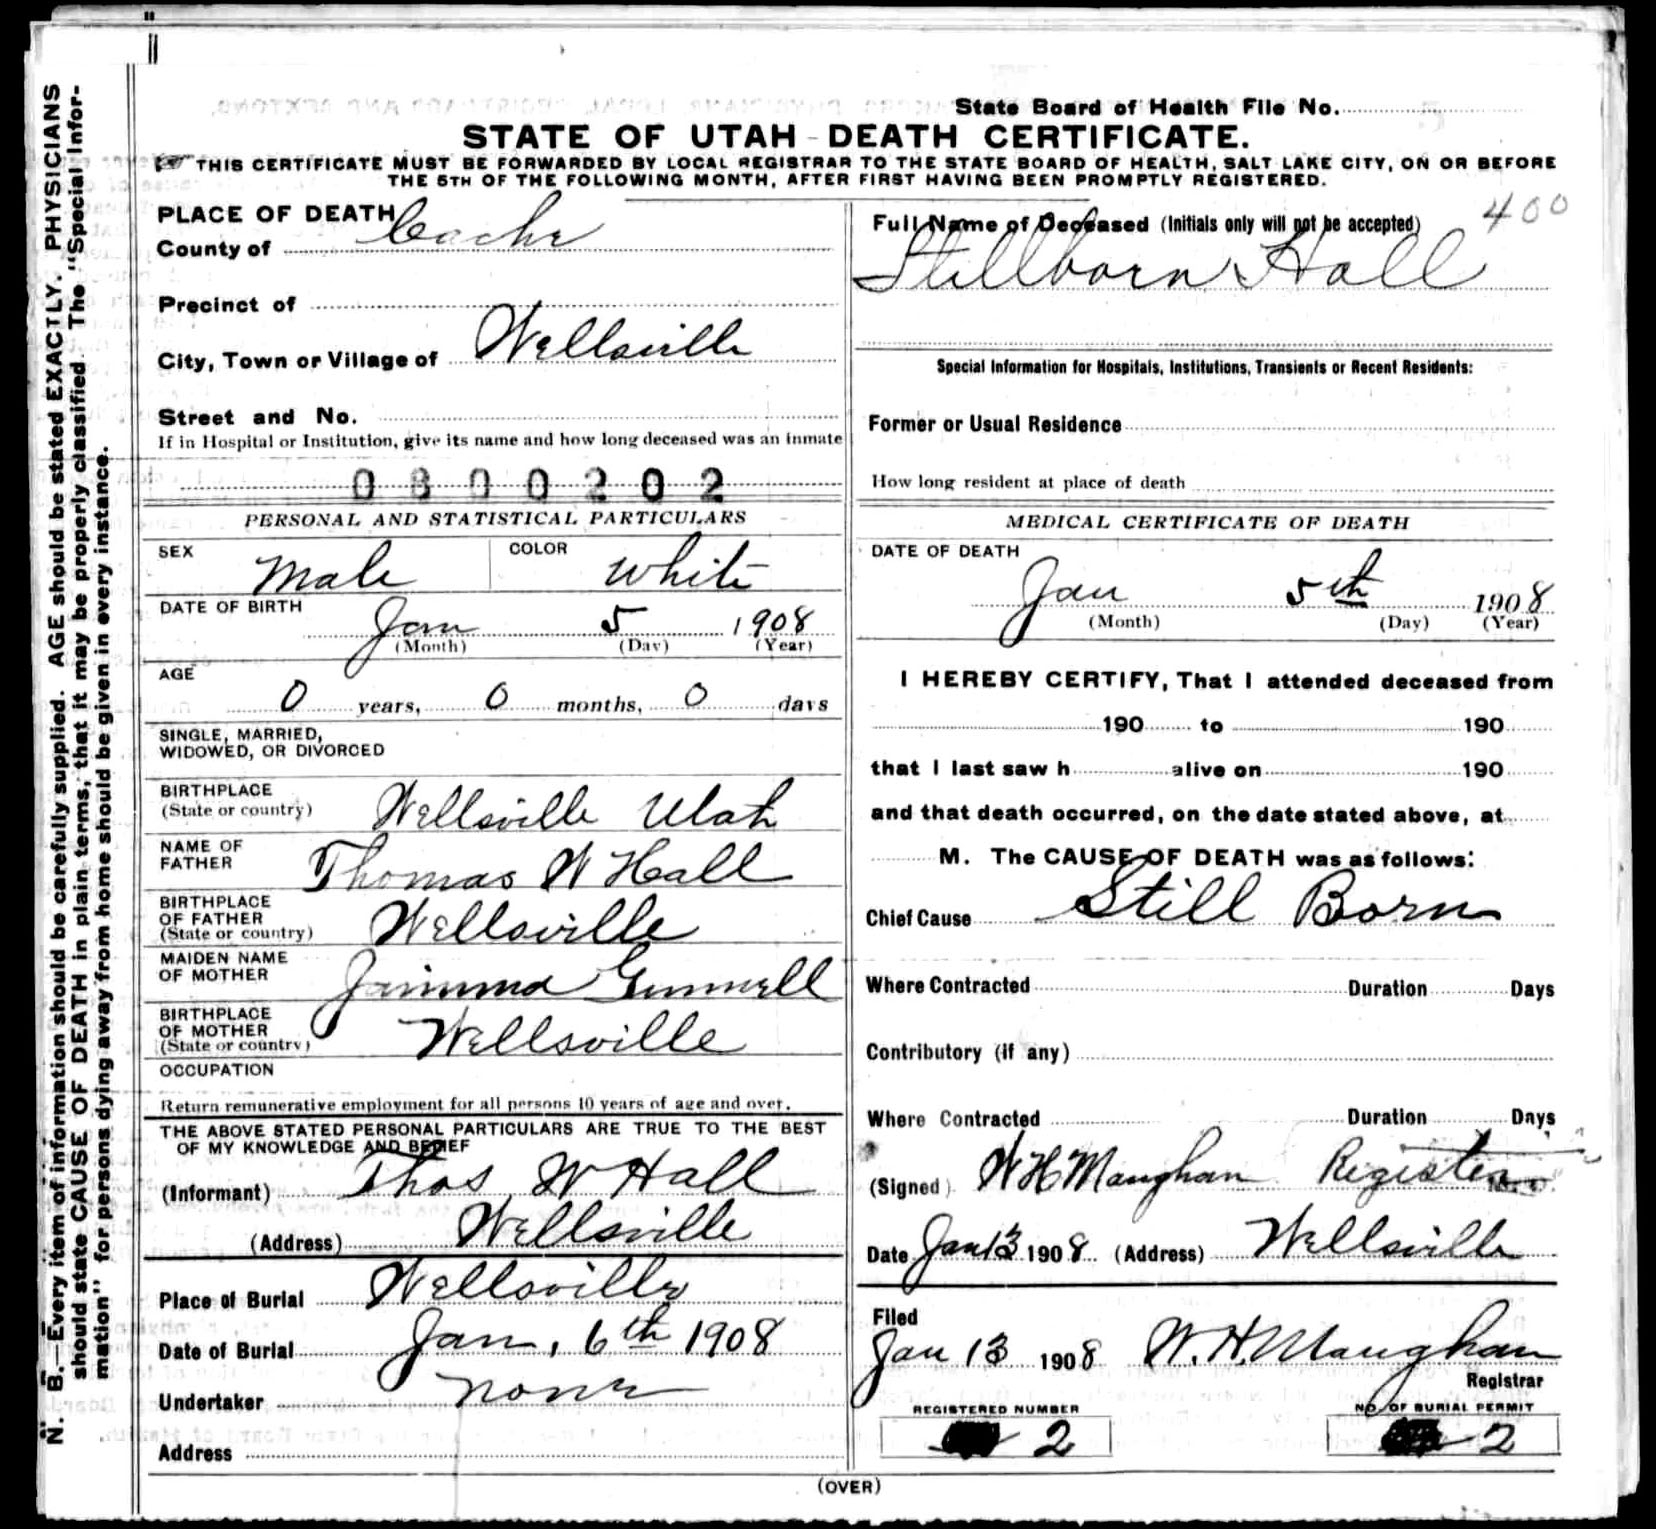 N. B.—Every item of information should be carefully supplied. AGE should be stated EXACTLY. PHYSICIANS
should state CAUSE OF DEATH in plain terms, that it may be properly classified. The "Special Infor-
mation" for persons dying away from home should be given in every instance.
State Board of Health File No.
STATE OF UTAH - DEATH CERTIFICATE.
THIS CERTIFICATE MUST BE FORWARDED BY LOCAL REGISTRAR TO THE STATE BOARD OF HEALTH, SALT LAKE CITY, ON OR BEFORE
THE 5TH OF THE FOLLOWING MONTH, AFTER FIRST HAVING BEEN PROMPTLY REGISTERED.
PLACE OF DEATH
County of Cache
Precinct of
City, Town or Village of Wellsville
Street and No.
If in Hospital or Institution, give its name and how long deceased was an inmate
0800202
PERSONAL AND STATISTICAL PARTICULARS
SEX Male COLOR White
DATE OF BIRTH
Jan 5 1908
(Month) (Day) (Year)
AGE
0 years, 0 months, 0 days
SINGLE, MARRIED,
WIDOWED, OR DIVORCED
BIRTHPLACE
(State or country) Wellsville Utah
NAME OF
FATHER Thomas W Hall
BIRTHPLACE
OF FATHER
(State or country) Wellsville
MAIDEN NAME
OF MOTHER Gunnell
BIRTHPLACE
OF MOTHER
(State or country) Wellsville
OCCUPATION
Return remunerative employment for all persons 10 years of age and over.
THE ABOVE STATED PERSONAL PARTICULARS ARE TRUE TO THE BEST
OF MY KNOWLEDGE AND BELIEF
(Informant) Thos W Hall
(Address) Wellsville
Place of Burial Wellsville
Date of Burial Jan, 6th 1908
Undertaker none
Address
400
Full Name of Deceased (Initials only will not be accepted)
Stillborn Hall
Special Information for Hospitals, Institutions, Transients or Recent Residents:
Former or Usual Residence
How long resident at place of death
MEDICAL CERTIFICATE OF DEATH
DATE OF DEATH
Jan 5th 1908
(Month) (Day) (Year)
I HEREBY CERTIFY, That I attended deceased from
190 to 190
that I last saw h alive on 190
and that death occurred, on the date stated above, at
M. The CAUSE OF DEATH was as follows:
Chief Cause Still Born
Where Contracted Duration Days
Contributory (if any)
Where Contracted Duration Days
(Signed) W H Maughan Register
Date Jan 13 1908 (Address) Wellsville
Filed
Jan 13 1908 W. H. Maughan
Registrar
REGISTERED NUMBER
2
NO. OF BURIAL PERMIT
2
(OVER)